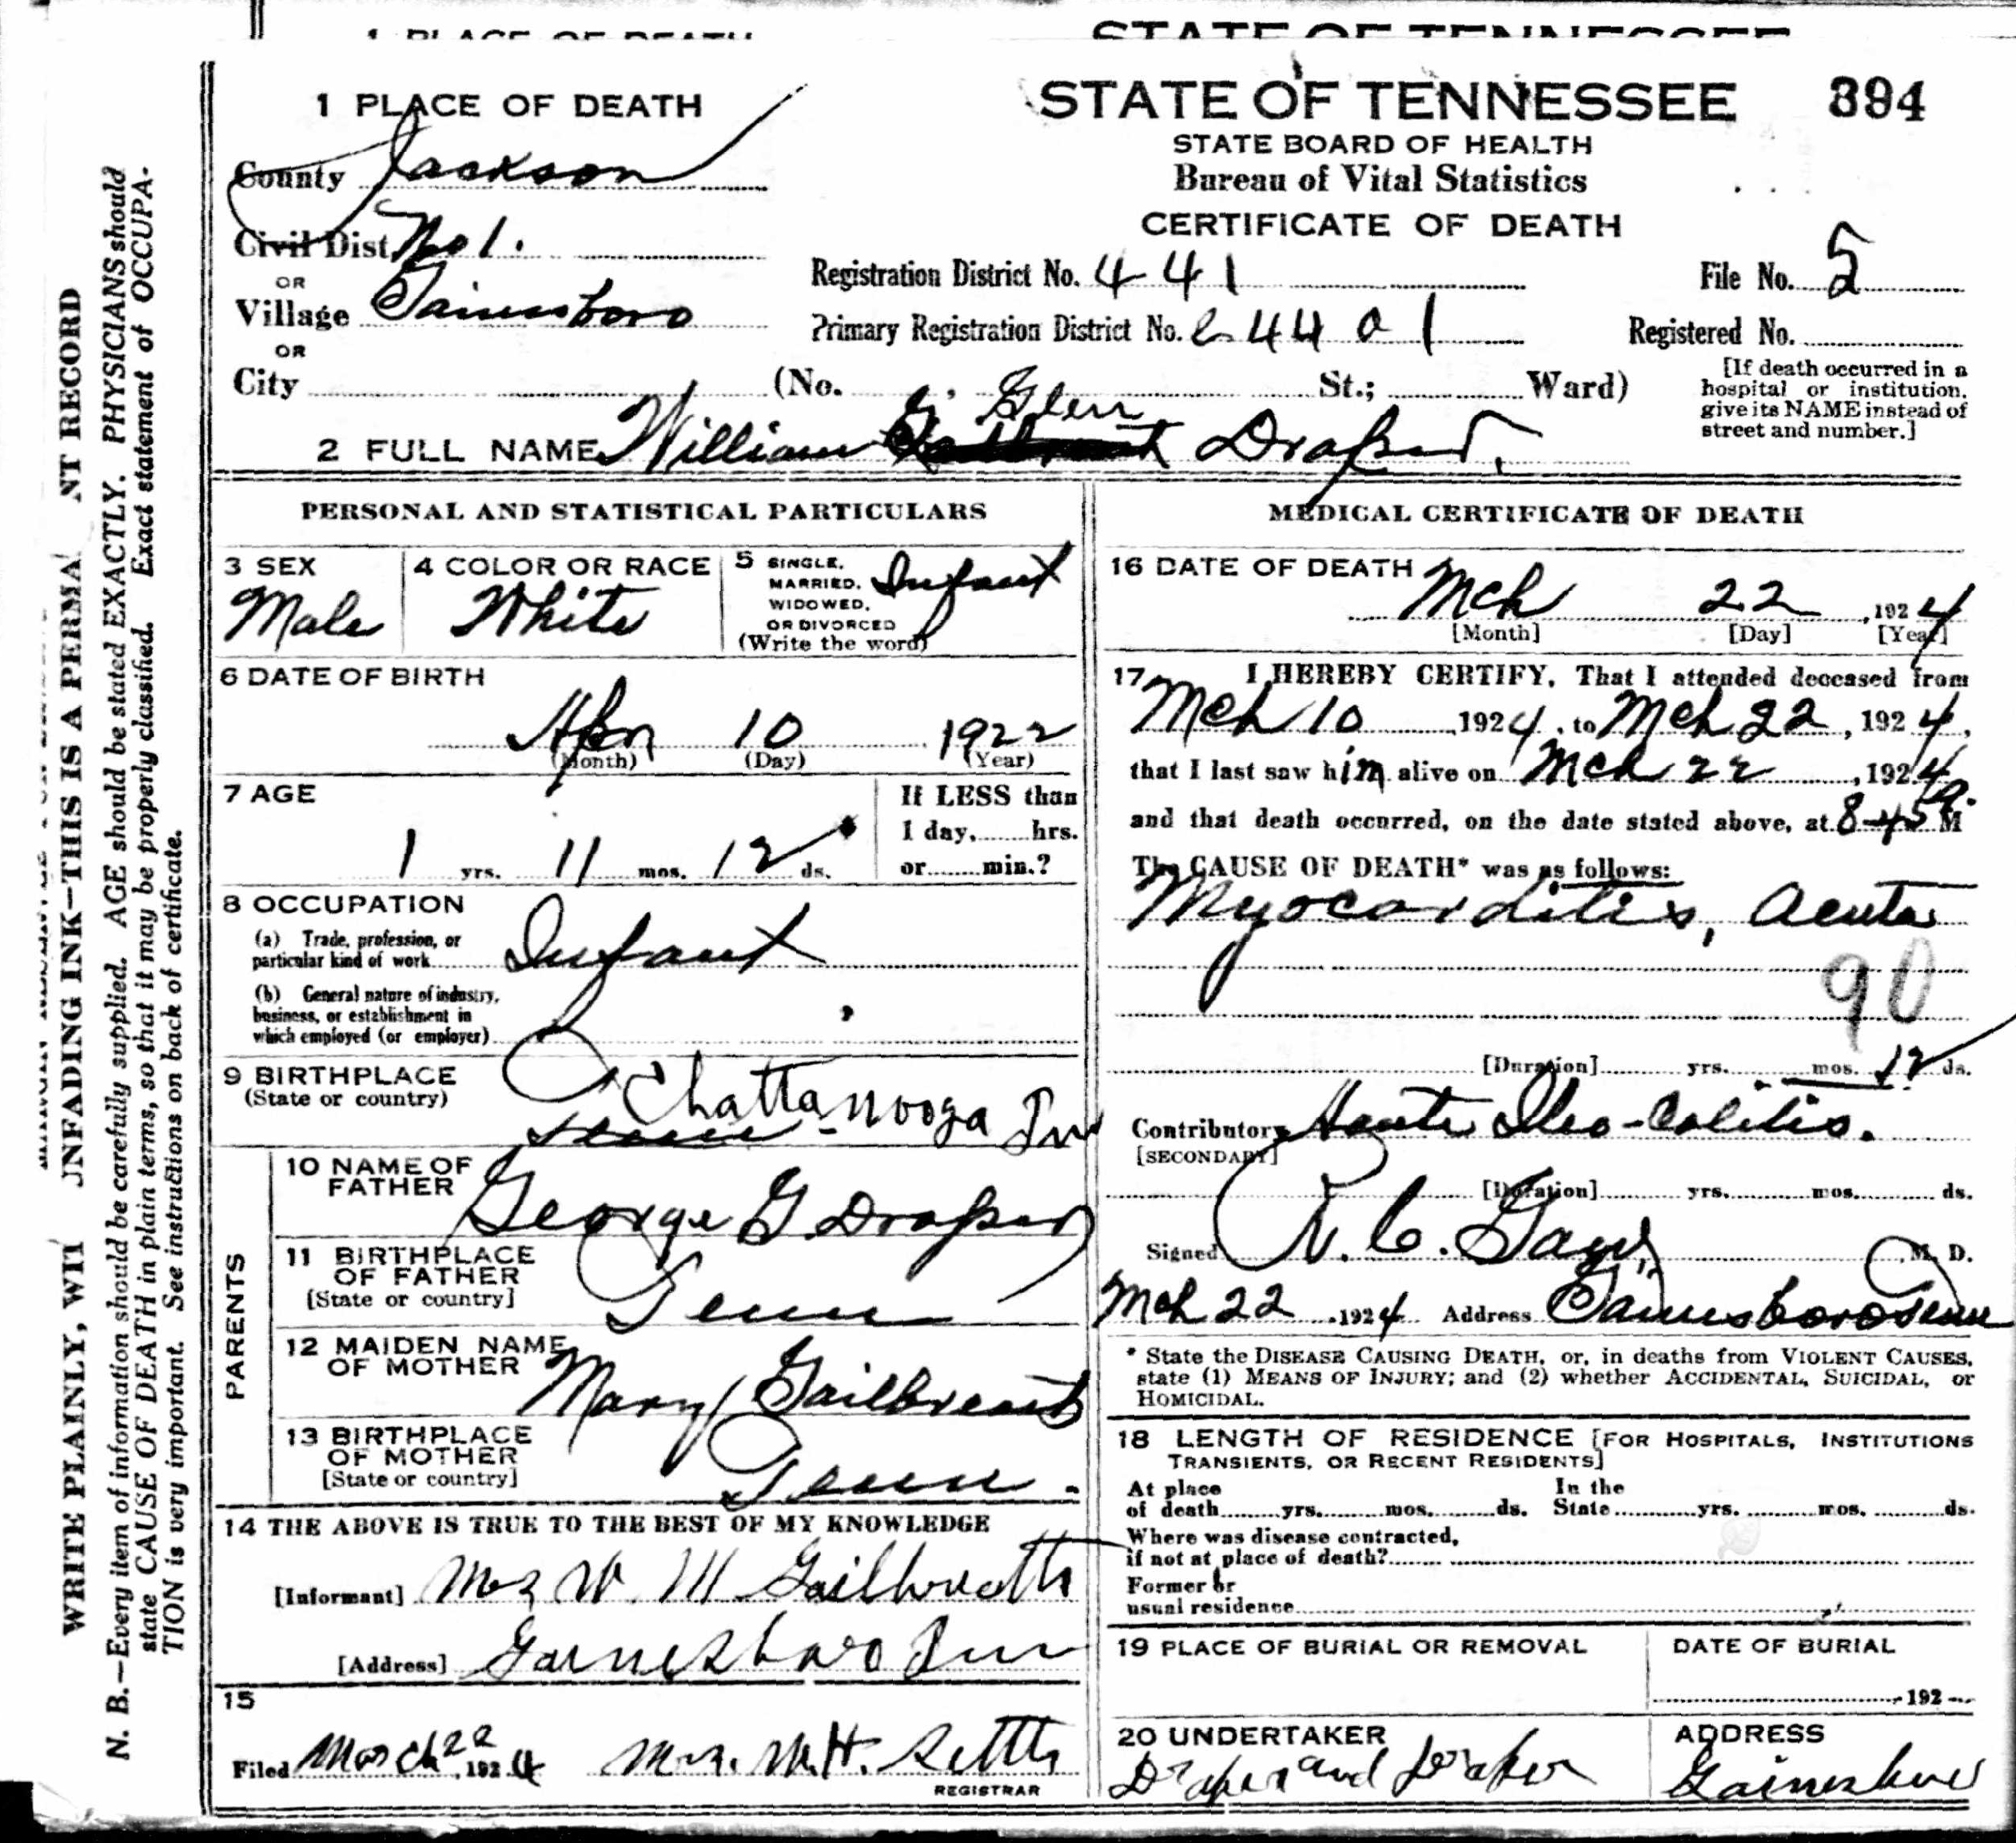 STATE OF TENNESSEE
1 PLACE OF DEATH
STATE OF TENNESSEE 394
STATE BOARD OF HEALTH
Bureau of Vital Statistics
CERTIFICATE OF DEATH
County Jackson
Civil Dist. No 1.
OR
Village Gainesboro
OR
City (No. , St.; Ward)
Registration District No. 441
File No. 5
Primary Registration District No. 4401
Registered No.
[If death occurred in a hospital or institution, give its NAME instead of street and number.]
2 FULL NAME William G Glen Draper.
PERSONAL AND STATISTICAL PARTICULARS
3 SEX
Male
4 COLOR OR RACE
White
5 SINGLE, MARRIED, WIDOWED, OR DIVORCED
(Write the word)
Infant
6 DATE OF BIRTH
Apr 10 1922
(Month) (Day) (Year)
7 AGE
1 yrs. 11 mos. 12 ds.
If LESS than
1 day, hrs.
or min.?
8 OCCUPATION
(a) Trade, profession, or
particular kind of work Infant
(b) General nature of industry,
business, or establishment in
which employed (or employer)
9 BIRTHPLACE
(State or country)
Chattanooga Tn
Tenn
PARENTS
10 NAME OF
FATHER
George G. Draper
11 BIRTHPLACE
OF FATHER
[State or country]
Tenn
12 MAIDEN NAME
OF MOTHER
Mary Gailbreath
13 BIRTHPLACE
OF MOTHER
[State or country]
Tenn.
14 THE ABOVE IS TRUE TO THE BEST OF MY KNOWLEDGE
[Informant] Mrs W. M Gailbreath
[Address] Gainesboro Tenn
15
Filed March 22, 1924 Mrs. M.H. Settle
REGISTRAR
MEDICAL CERTIFICATE OF DEATH
16 DATE OF DEATH
Mch 22, 1924
[Month] [Day] [Year]
17 I HEREBY CERTIFY, That I attended deceased from
Mch 10 1924, to Mch 22, 1924,
that I last saw him alive on Mch 22, 1924
and that death occurred, on the date stated above, at 8-45 a. M
The CAUSE OF DEATH* was as follows:
Myocarditis, Acute
90
[Duration] yrs. mos. 12 ds.
Contributory Acute Ileo-Colitis.
[SECONDARY]
[Duration] yrs. mos. ds.
Signed R. C. Gaw, M. D.
Mch 22, 1924 Address Gainesboro Tenn
* State the DISEASE CAUSING DEATH, or, in deaths from VIOLENT CAUSES,
state (1) MEANS OF INJURY; and (2) whether ACCIDENTAL, SUICIDAL, or
HOMICIDAL.
18 LENGTH OF RESIDENCE [FOR HOSPITALS, INSTITUTIONS
TRANSIENTS, OR RECENT RESIDENTS]
At place
of death yrs. mos. ds.
In the
State yrs. mos. ds.
Where was disease contracted,
if not at place of death?
Former or
usual residence
19 PLACE OF BURIAL OR REMOVAL
DATE OF BURIAL
192
20 UNDERTAKER
Draper and Draper
ADDRESS
Gainesboro
WRITE PLAINLY, WIT UNFADING INK—THIS IS A PERMA NT RECORD
N. B.—Every item of information should be carefully supplied. AGE should be stated EXACTLY. PHYSICIANS should
state CAUSE OF DEATH in plain terms, so that it may be properly classified. Exact statement of OCCUPA-
TION is very important. See instructions on back of certificate.